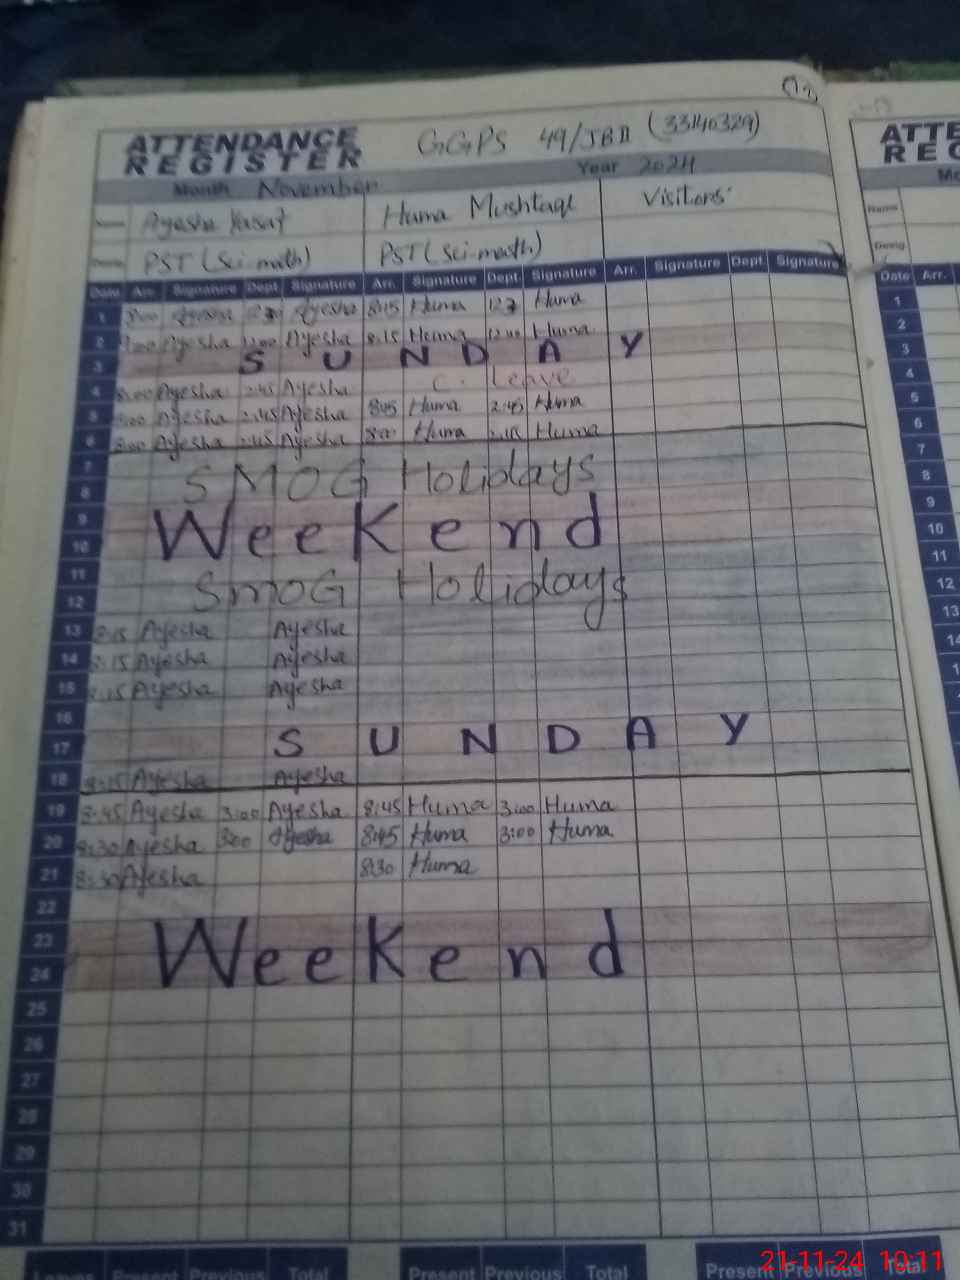 ATTENDANCE REGISTER GGPS 49/JB II (33140329)
Month November Year 2024
Ayesha Huma Mushtaq Visitors
PST (Sci-math) PST (Sci-math)
Date Arr. Signature Dept. Signature Arr. Signature Dept. Signature Arr. Signature Dept. Signature
1 8:00 Ayesha Ayesha 8:15 Huma Huma
2 Ayesha 12:00 Ayesha 8:15 Huma 12:00 Huma
3 SUNDAY
4 8:00 Ayesha 2:45 Ayesha C. Leave
5 8:00 Ayesha 2:45 Ayesha 8:45 Huma 2:45 Huma
6 8:00 Ayesha 2:45 Ayesha 8:00 Huma 2:45 Huma
7
SMOG Holidays
8
9
Weekend
10
11
SMOG Holidays
12
13 8:15 Ayesha Ayesha
14 8:15 Ayesha Ayesha
15 8:15 Ayesha Ayesha
16
17 SUNDAY
18 8:15 Ayesha Ayesha
19 8:45 Ayesha 3:00 Ayesha 8:45 Huma 3:00 Huma
20 8:30 Ayesha 3:00 Ayesha 8:45 Huma 3:00 Huma
21 8:30 Ayesha 8:30 Huma
22
23
Weekend
24
25
26
27
28
29
30
31
Present Previous Total Present Previous Total Present Previous Total
ATTE
RE
Name
Desig
Date Arr.
1
2
3
4
5
6
7
8
9
10
11
12
13
14
21-11-24 10:11